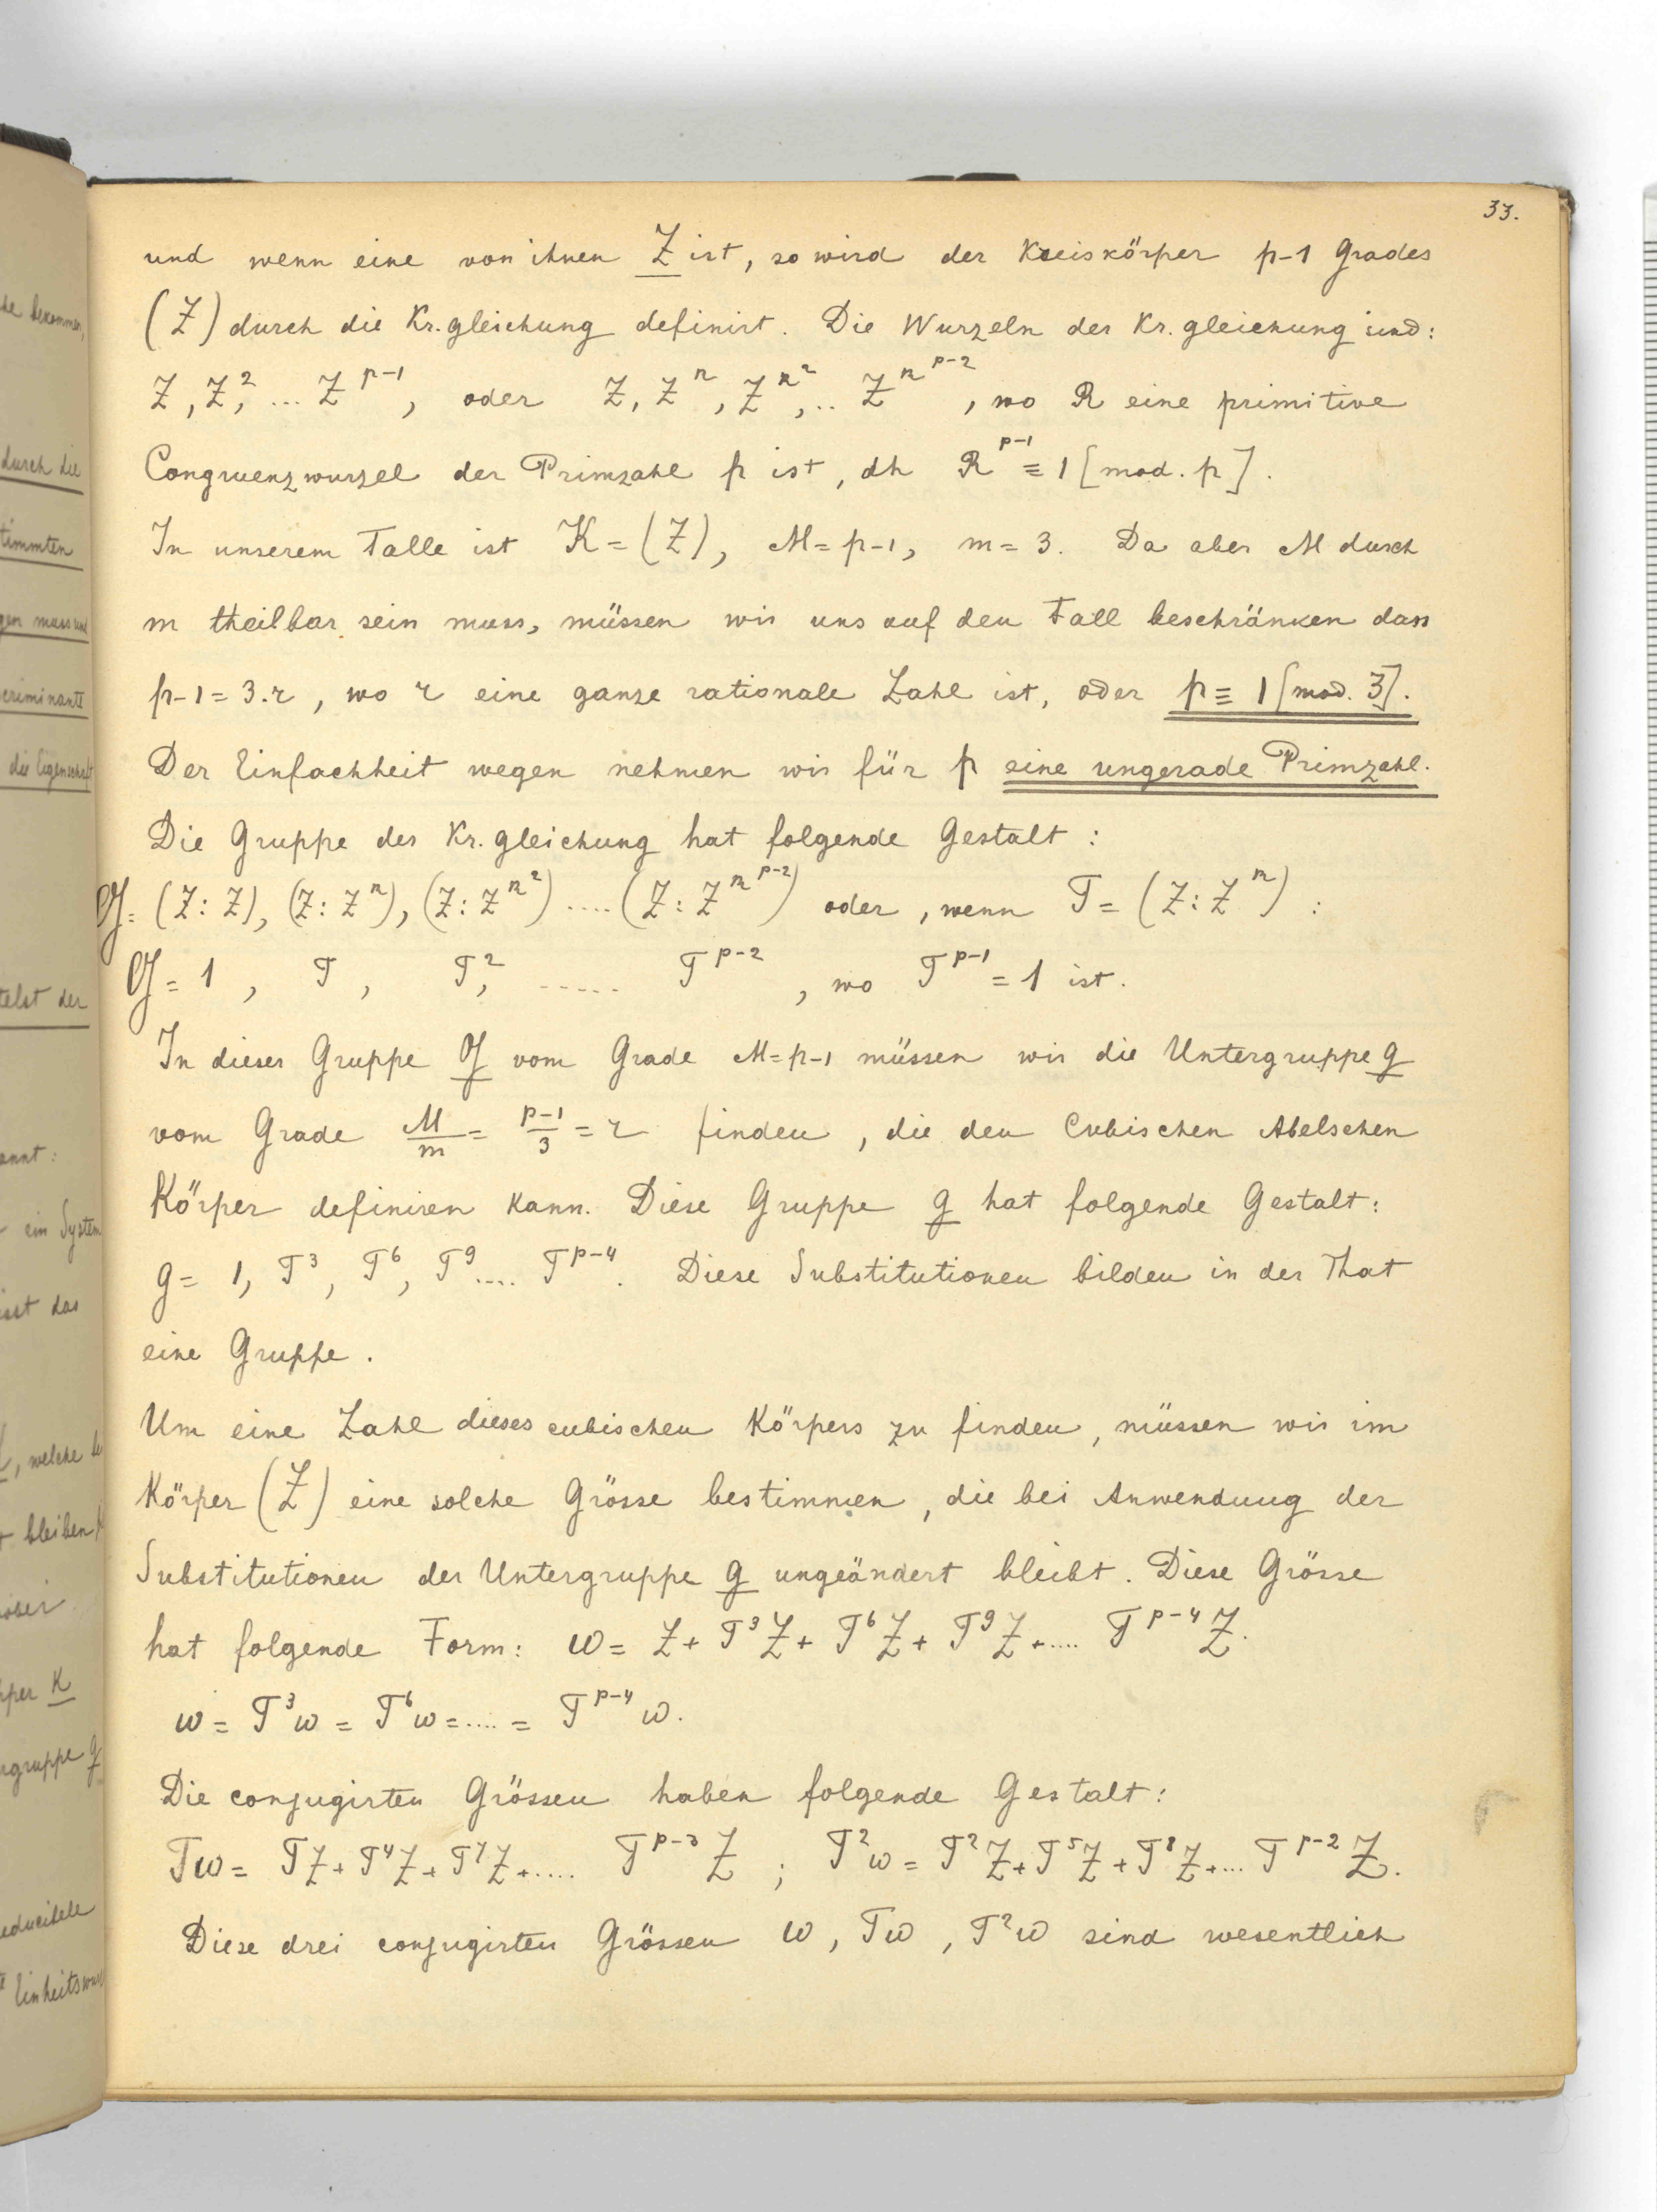 33.
und wenn eine von ihnen Z ist, so wird der Kreiskörper p-1 Grades
(Z) durch die Kr. gleichung definirt. Die Wurzeln der Kr. gleichung sind:
Z, Z², ... Z^{p-1}, oder Z, Z^R, Z^{R²}, .. Z^{R^{p-2}}, wo R eine primitive
Congruenzwurzel der Primzahl p ist, dh R^{p-1} ≡ 1 [mod. p].
In unserem Falle ist K = (Z), M = p-1, m = 3. Da aber M durch
m theilbar sein muss, müssen wir uns auf den Fall beschränken dass
p-1 = 3.r, wo r eine ganze rationale Zahl ist, oder p ≡ 1 [mod. 3].
Der Einfachheit wegen nehmen wir für p eine ungerade Primzahl.
Die Gruppe der Kr. gleichung hat folgende Gestalt:
G = (Z:Z), (Z:Z^R), (Z:Z^{R²}) .... (Z:Z^{R^{p-2}}) oder, wenn T = (Z:Z^R) :
G = 1, T, T², ..... T^{p-2}, wo T^{p-1} = 1 ist.
In dieser Gruppe G vom Grade M = p-1 müssen wir die Untergruppe g
vom Grade M/m = p-1/3 = r finden, die den Cubischen Abelschen
Körper definiren kann. Diese Gruppe g hat folgende Gestalt:
g = 1, T³, T⁶, T⁹ .... T^{p-4}. Diese Substitutionen bilden in der That
eine Gruppe.
Um eine Zahl dieses cubischen Körpers zu finden, müssen wir im
Körper (Z) eine solche Grösse bestimmen, die bei Anwendung der
Substitutionen der Untergruppe g ungeändert bleibt. Diese Grösse
hat folgende Form: ω = Z + T³Z + T⁶Z + T⁹Z + .... T^{p-4}Z.
ω = T³ω = T⁶ω = .... = T^{p-4}ω.
Die conjugirten Grössen haben folgende Gestalt:
Tω = TZ + T⁴Z + T⁷Z + ..... T^{p-3}Z ; T²ω = T²Z + T⁵Z + T⁸Z + ... T^{p-2}Z.
Diese drei conjugirten Grössen ω, Tω, T²ω sind wesentlich